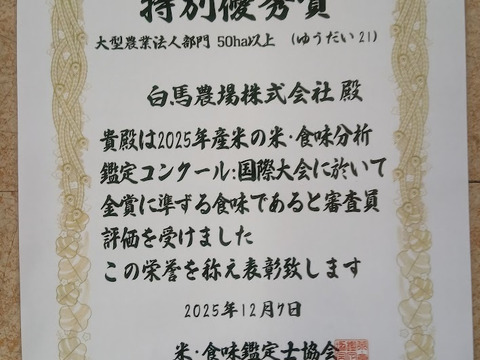 特別優秀賞
大型農業法人部門 50ha以上 (ゆうだい21)
白馬農場株式会社 殿
貴殿は2025年産米の米・食味分析
鑑定コンクール:国際大会に於いて
金賞に準ずる食味であると審査員
評価を受けました
この栄誉を称え表彰致します
2025年12月7日
米・食味鑑定士協会